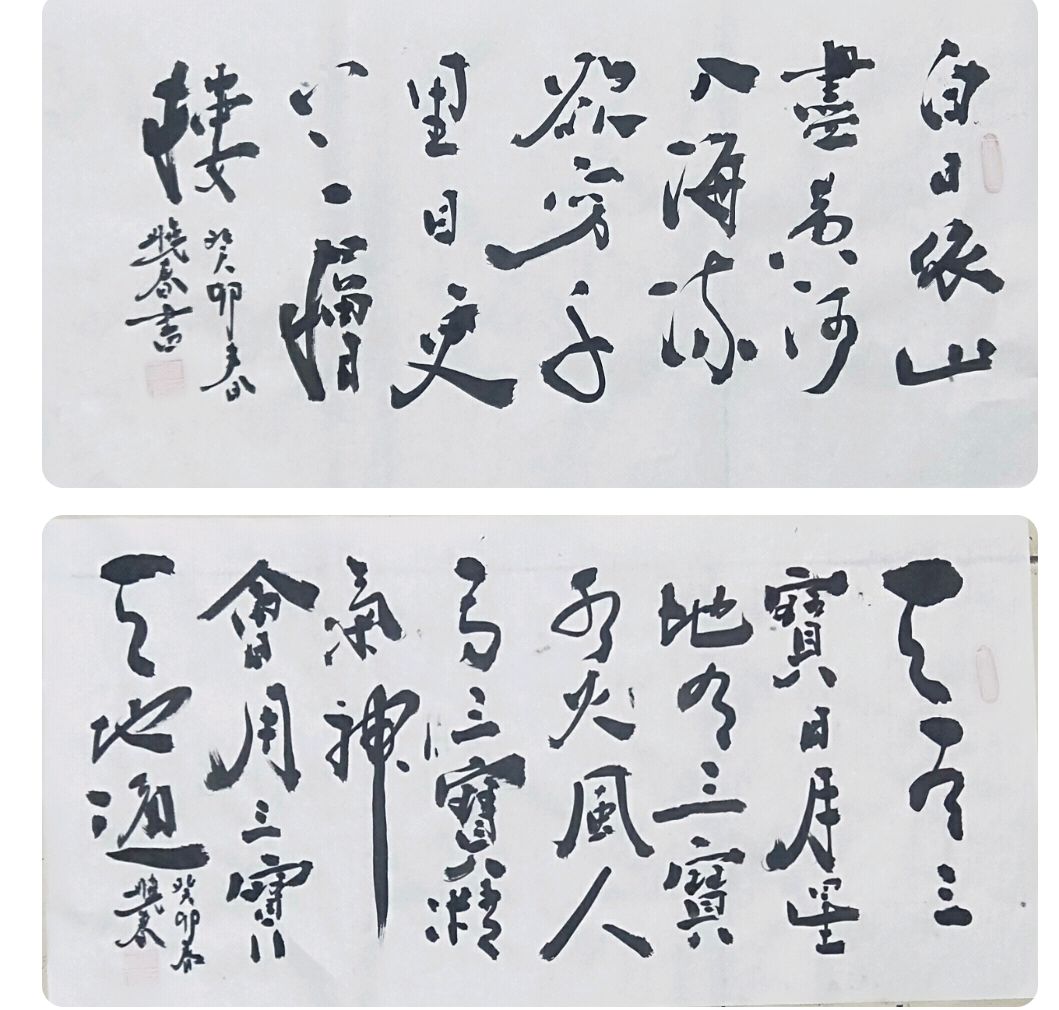 白日依山
盡黃河
入海流
欲窮千
里目更
上一層
樓
癸卯春
曉春書
天有三
寶日月星
地有三寶
水火風人
有三寶精
氣神
會用三寶
天地通
癸卯春
曉春